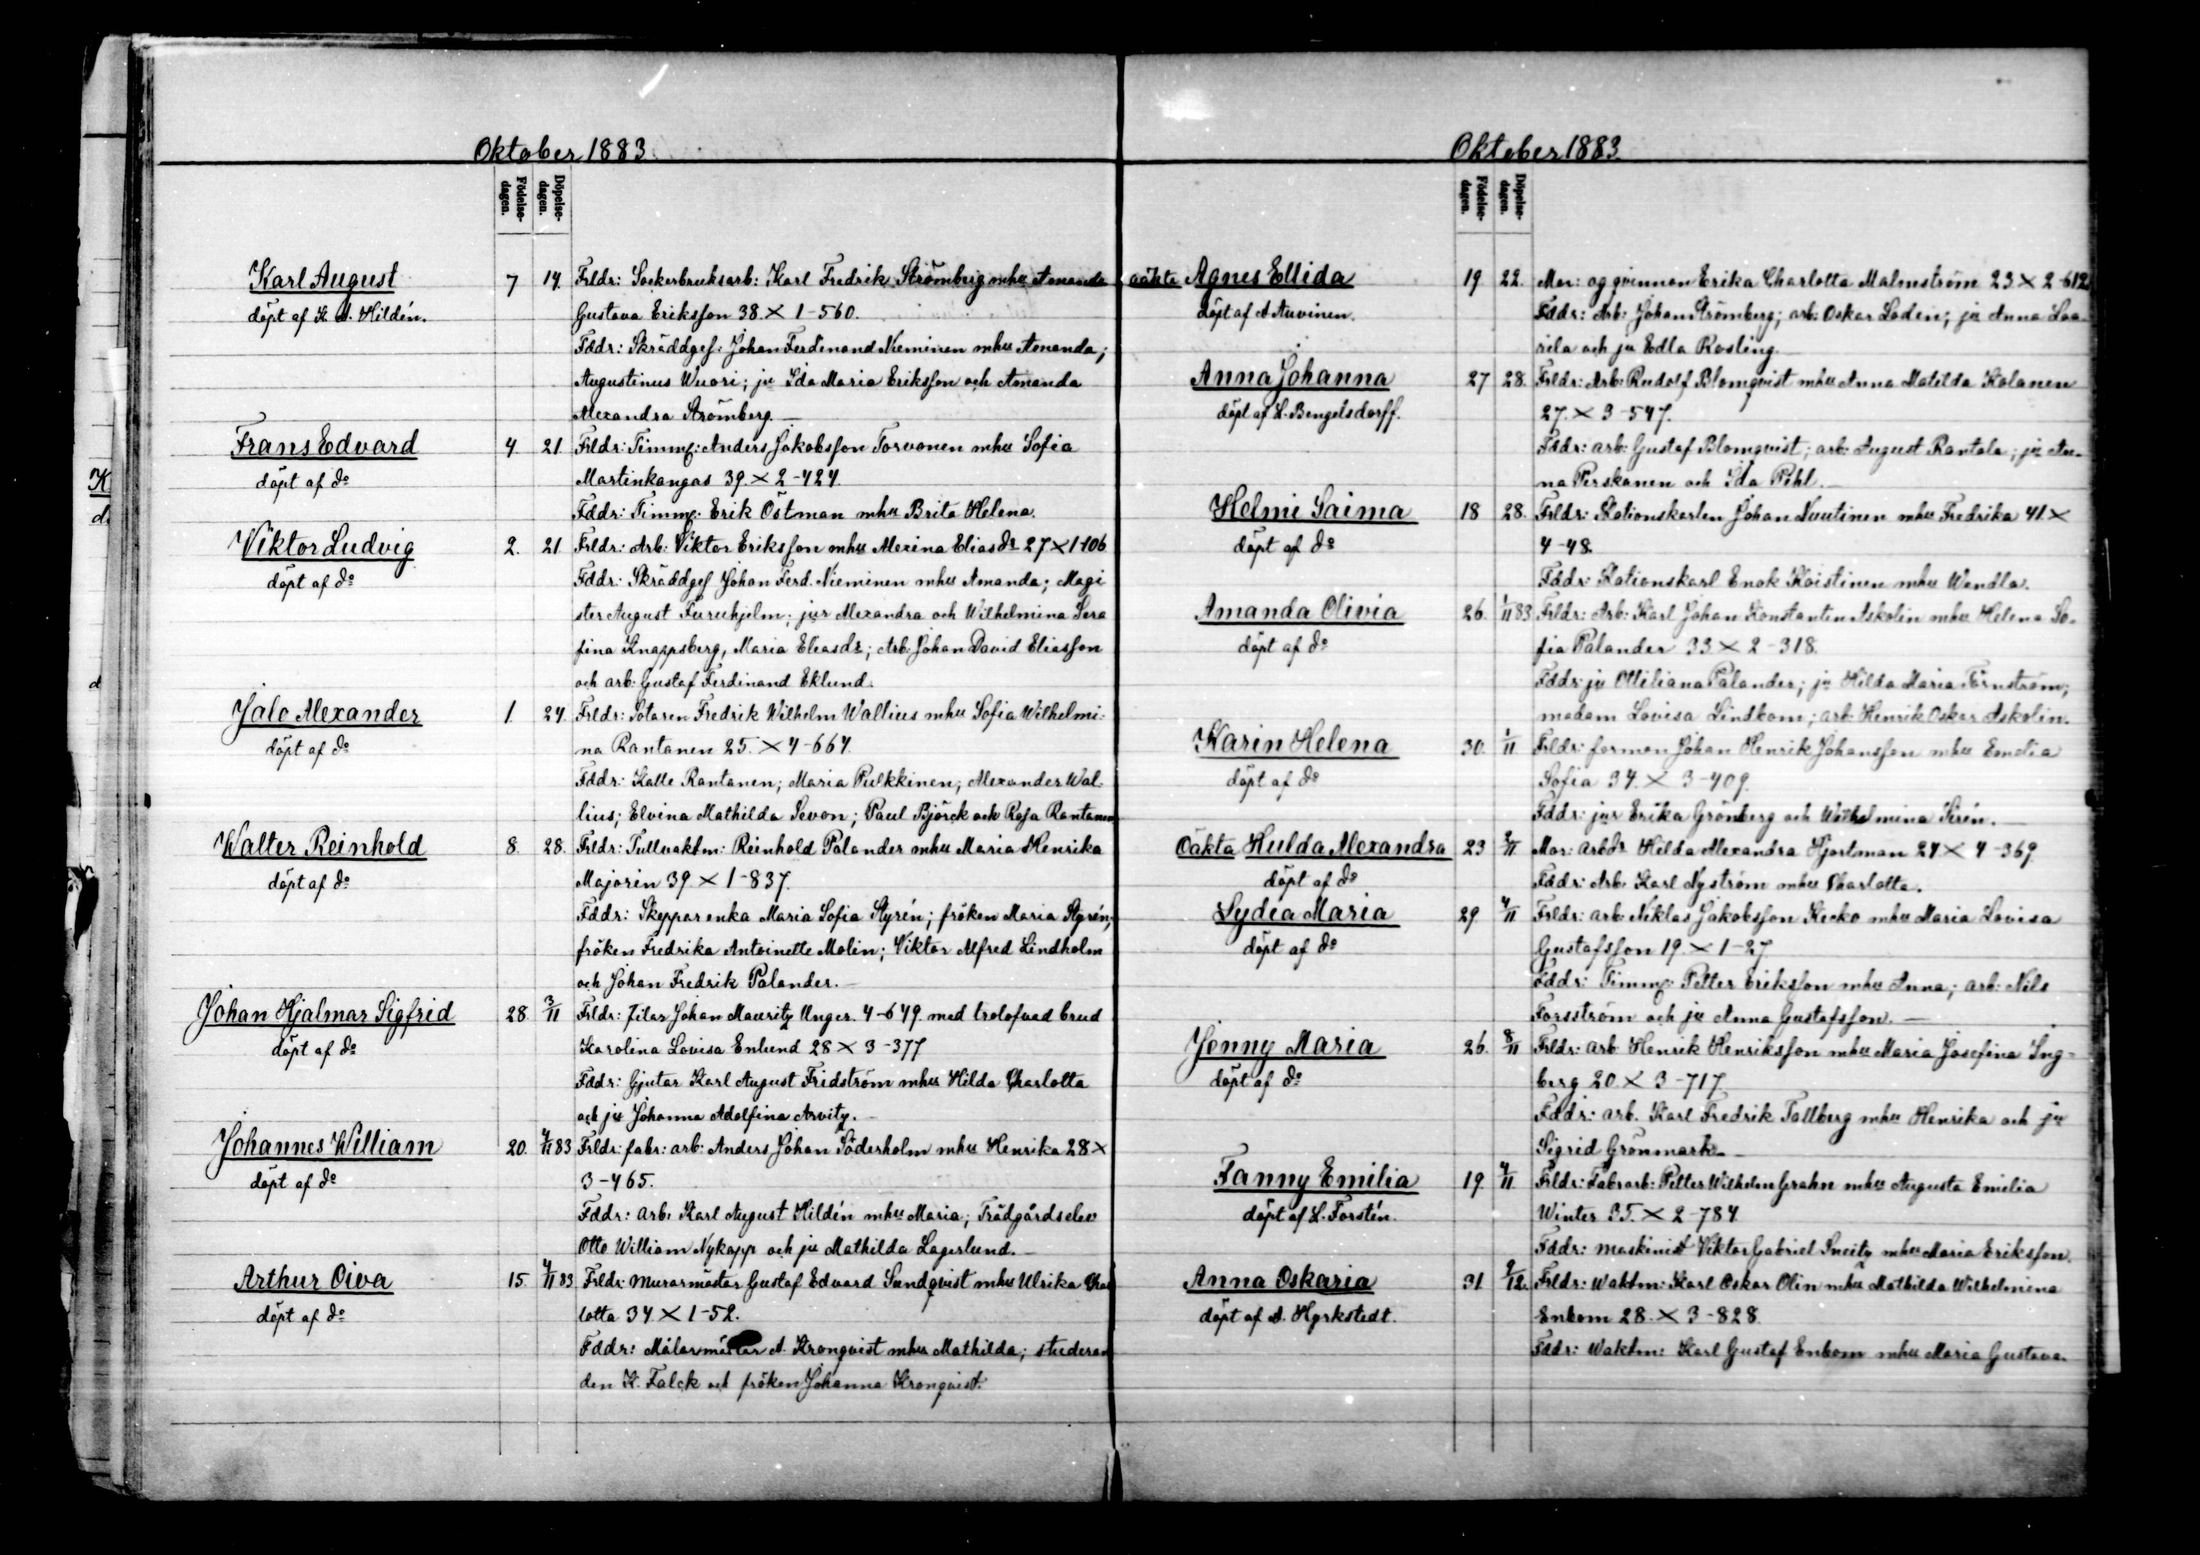 Oktober 1883.
Födelse-dagen.
Döpelse-dagen.
Karl August 7 14. Frldr: Sockerbruksarb: Karl Fredrik Strömberg mhu Amanda
döpt af K. A. Hildén. Gustava Eriksson 38. × 1-560.
Fddr: Skräddges: Johan Ferdinand Nieminen mhu Amanda;
Augustinus Wuori; ju Ida Maria Eriksson och Amanda
Alexandra Strömberg.
Frans Edvard 4 21 Frldr: Timm: Anders Jakobsson Torvonen mhu Sofia
döpt af do Martinkangas 39. × 2-424.
Fddr: Timm: Erik Östman mhu Brita Helena.
Viktor Ludvig 2. 21 Frldr: Arb: Viktor Eriksson mhu Alexina Eliasdr 27 × 1-106
döpt af do Fddr: Skräddges Johan Ferd. Nieminen mhu Amanda; Magi
ster August Furuhjelm; jur Alexandra och Wilhelmina Sera
fina Knappsberg, Maria Eliasdr; Arb: Johan David Eliasson
och arb: Gustaf Ferdinand Eklund.
Jalo Alexander 1. 24. Frldr: Sotaren Fredrik Wilhelm Wallius mhu Sofia Wilhelmi-
döpt af do na Rantanen 25. × 4-664.
Fddr: Kalle Rantanen; Maria Pulkkinen; Alexander Wal-
lius; Elvina Mathilda Sevon; Paul Björck och Rosa Rantanen
Walter Reinhold 8. 28. Frldr: Tullvaktm: Reinhold Palander mhu Maria Henrika
döpt af do Majorin 39. × 1-837.
Fddr: Skeppar enka Maria Sofia Styrén; fröken Maria Styrén;
fröken Fredrika Antoinette Molin; Viktor Alfred Lindholm
och Johan Fredrik Palander.
Johan Hjalmar Sigfrid 28. 3/11 Frldr: filar Johan Mauritz Unger. 4-649. med trolofvad brud
döpt af do Karolina Lovisa Enlund 28 × 3-377
Fddr: Gjutar Karl August Fredström mhu Hilda Charlotta
och ju Johanna Adolfina Arvity.
Johannes William 20. 4/11 83 Frldr: fabr: arb: Anders Johan Söderholm mhu Henrika 28 ×
döpt af do 3-465.
Fddr: Arb: Karl August Hildén mhu Maria; Trädgårdselev
Otto William Nykapp och ju Mathilda Lagerlund.
Arthur Oiva 15. 4/11 83 Frldr: Murarmästar Gustaf Edvard Sundqvist mhu Ulrika Char
döpt af do lotta 34. × 1-52.
Fddr: Målarmästar A. Kronqvist mhu Mathilda; studeran
den K. Falck och fröken Johanna Kronqvist.
Oktober 1883.
Födelse-dagen.
Döpelse-dagen.
oäkta Agnes Ellida 19 22. Mor: og qvinnan Erika Charlotta Malmström 23. × 2-612
döpt af A Auvinen. Fddr: Arb: Johan Strömberg; arb: Oskar Loden; ju Anna Laa-
rila och ju Edla Rosling.
Anna Johanna 27 28. Frldr: Arb: Rudolf Blomqvist mhu Anna Matilda Kolanen
döpt af L. Bengelsdorff. 27. × 3-547.
Fddr: arb: Gustaf Blomqvist; arb: August Rantala; ju An-
na Perskanen och Ida Pihl.
Helmi Saima 18 28. Frldr: Stationskarlen Johan Nuutinen mhu Fredrika 41. ×
döpt af do 4-48.
Fddr: Stationskarl Enok Koistinen mhu Wendla.
Amanda Olivia 26. 1/11 83 Frldr: Arb: Karl Johan Konstantin Askolin mhu Helena So-
döpt af do fia Palander 33. × 2-318.
Fddr: ju Ottiliana Palander; ju Hilda Maria Törnström;
madam Lovisa Lindkom; arb: Henrik Oskar Askolin.
Karin Helena 30. 1/11 Frldr: forman Johan Henrik Johansson mhu Emelia
döpt af do Sofia 34. × 3-409.
Fddr: jur Erika Grönberg och Wilhelmina Sirén.
Oäkta Hulda Alexandra 23 2/11 Mor: arbdr Hilda Alexandra Hjortman 24 × 4-369.
döpt af do Fddr: Arb: Karl Nyström mhu Charlotta.
Lydia Maria 29 4/11 Frldr: arb: Niklas Jakobsson Kecko mhu Maria Lovisa
döpt af do Gustafsson 19. × 1-27
Fddr: Timm: Petter Eriksson mhu Anna; arb: Nils
Forsström och ju Anna Gustafsson.
Jenny Maria 26. 8/11 Frldr: arb Henrik Henriksson mhu Maria Josefina Ing-
döpt af do berg 20. × 3-717.
Fddr: arb. Karl Fredrik Tallberg mhu Henrika och ju
Sigrid Grönmark.
Fanny Emilia 19 4/11. Frldr: Fabrarb: Petter Wilhelm Grahn mhu Augusta Emilia
döpt af L. Forstén. Winter 35. × 2-784.
Fddr: maskinist Viktor Gabriel mhu Maria Eriksson.
Anna Oskaria 31 2/12. Frldr: Waktm: Karl Oskar Olin mhu Mathilda Wilhelmina
döpt af A. Hyrkstedt. Enbom 28. × 3-828.
Fddr: Waktm: Karl Gustaf Enbom mhu Maria Gustava.